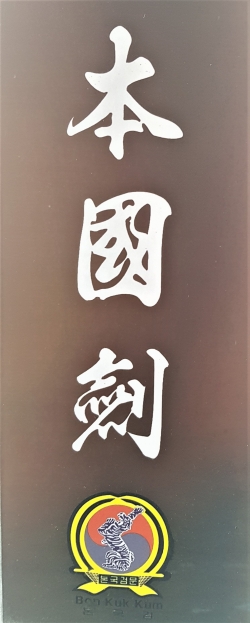 本
國
劍
본국검문
Bon Kuk Kum
본국검